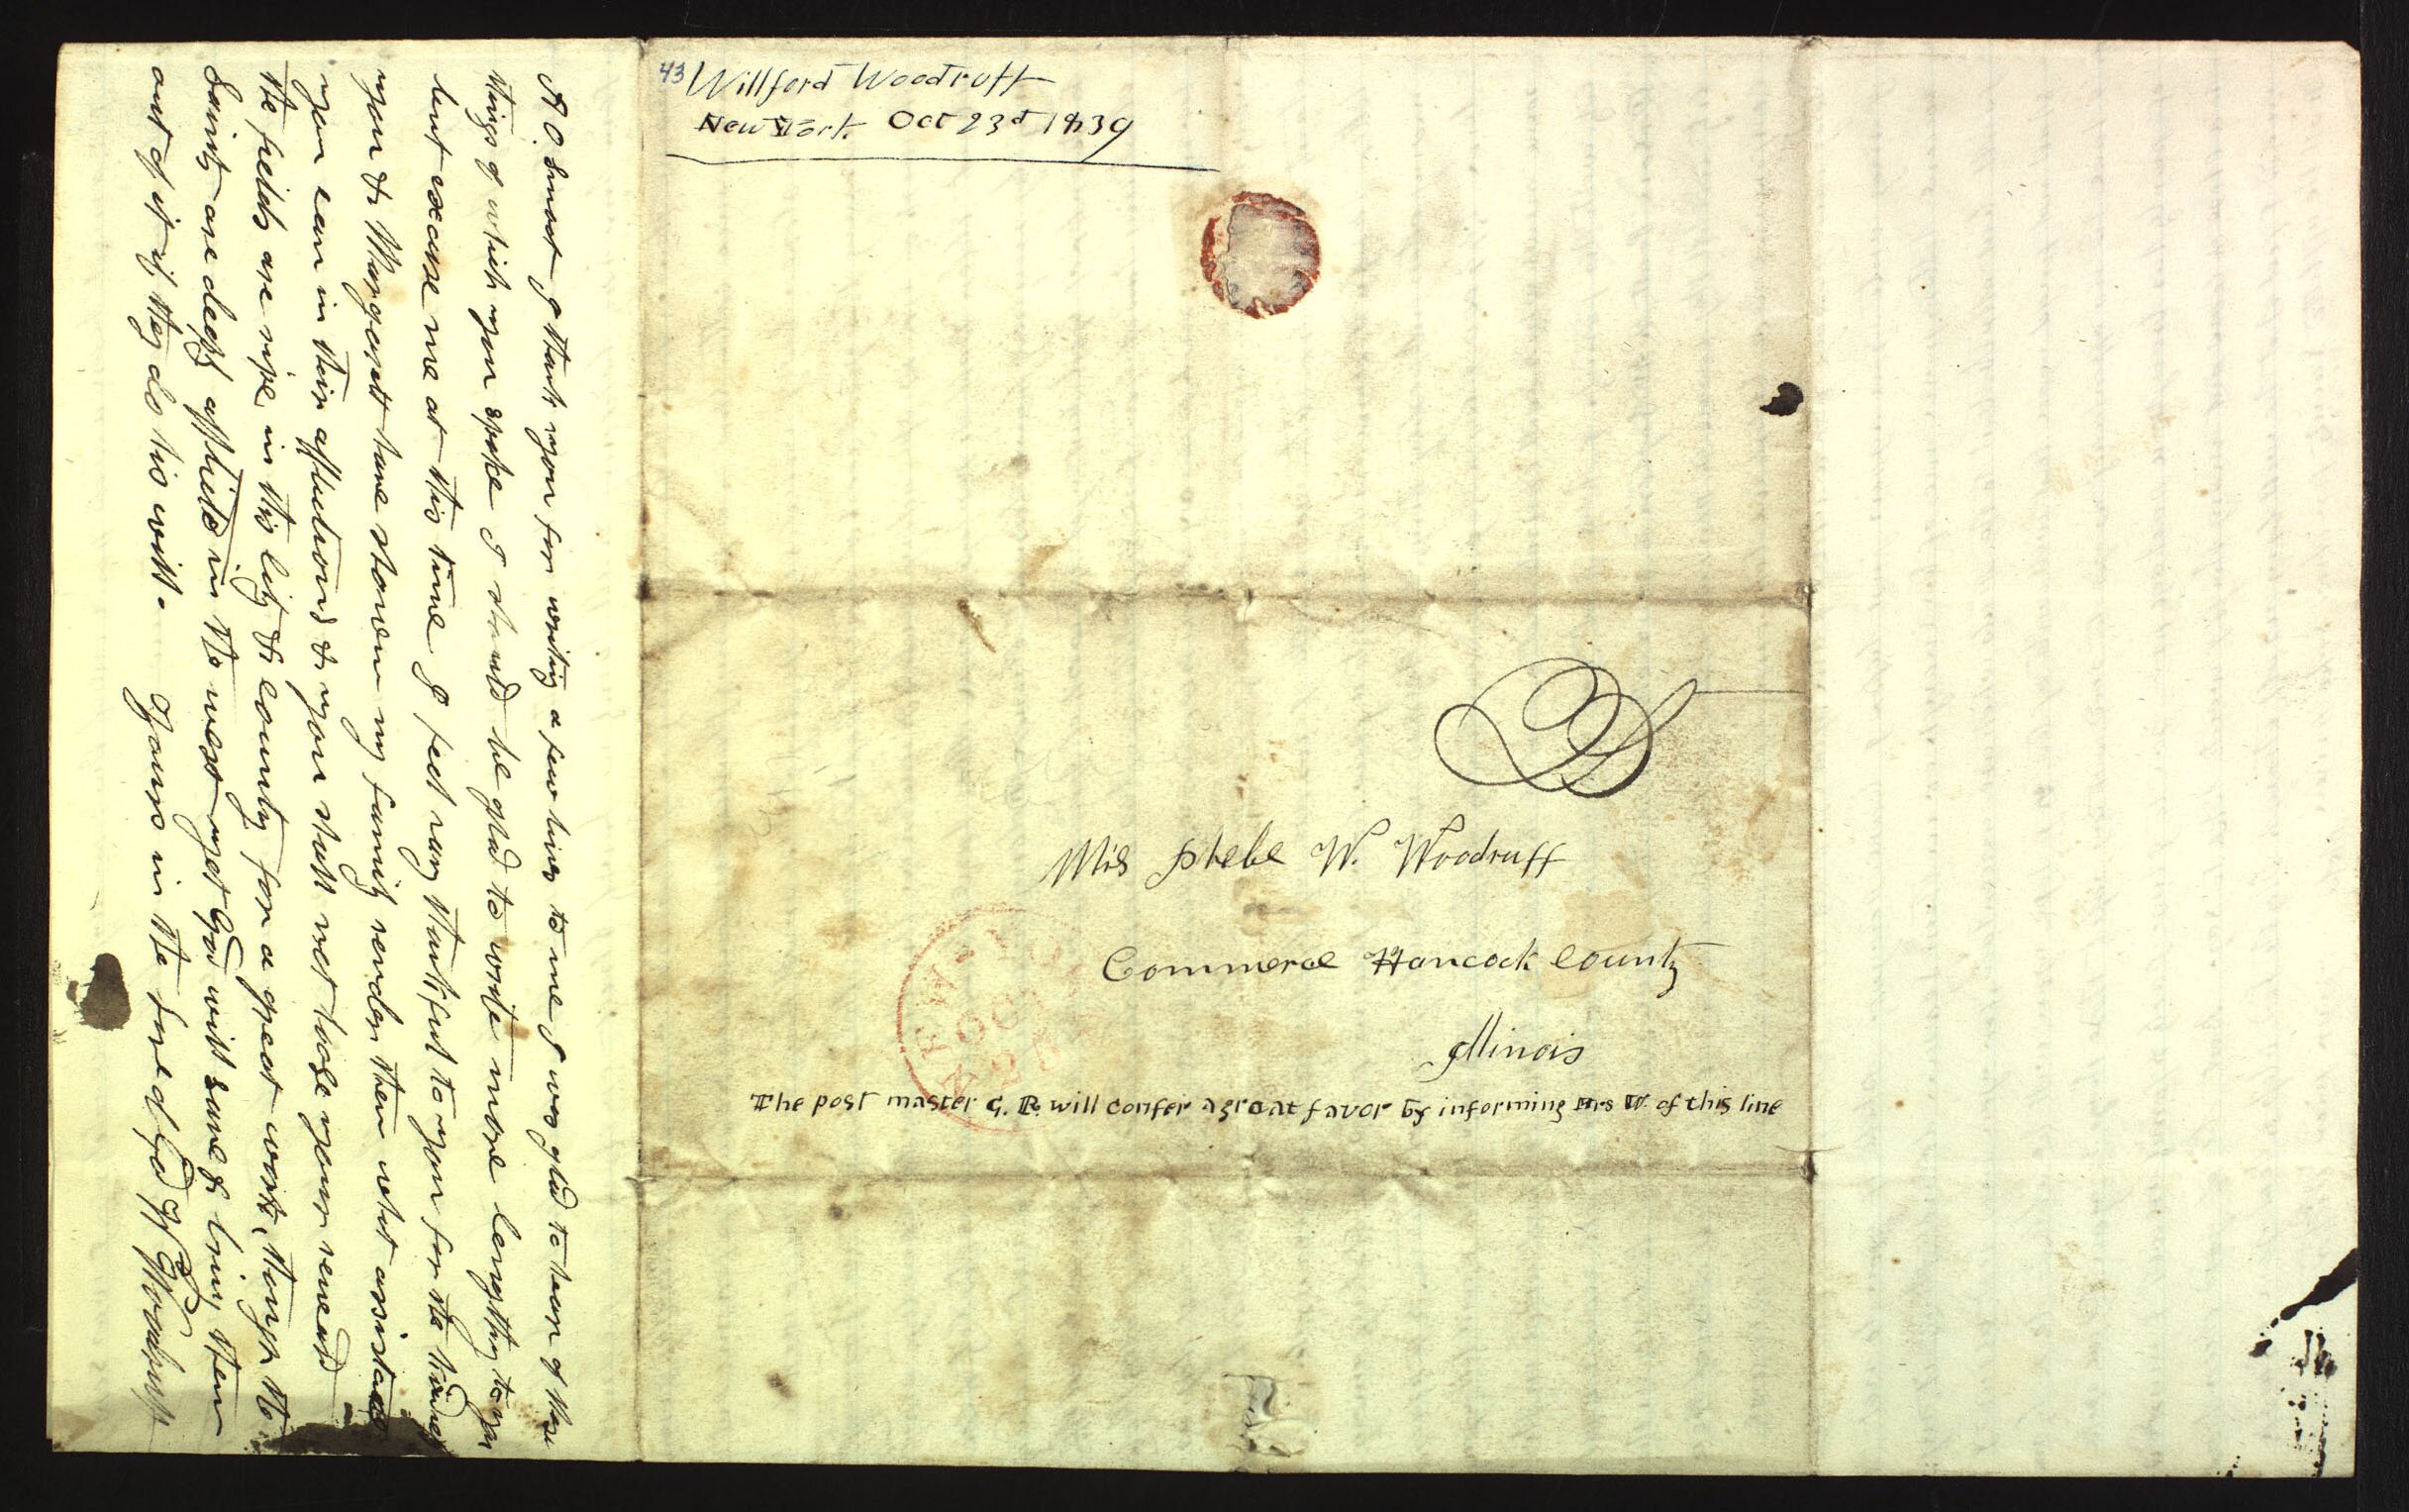 43
Willford Woodruff
New York Oct 23d 1839
Mrs Phebe W. Woodruff
Commerce Hancock County
Illinois
The post master G. R. will confer a great favor by informing Mrs W. of this line
NEW-YORK
OCT
A O. Smoot I thank you for writing a few lines to me I was glad to hear of those
things of which you spoke I should be glad to write more lengthy to you
but excuse me at this time I feel vary thankful to you for the kindness
you & Margarett have shown my family render them what assistance
you can in their afflictions & you shall not loose your reward
the fields are ripe in this city & county for a great work, though the
Saints are deeply afflicted in the west yet God will save & bring them
out of it if they do his will.
Yours in the Lord God W Woodruff